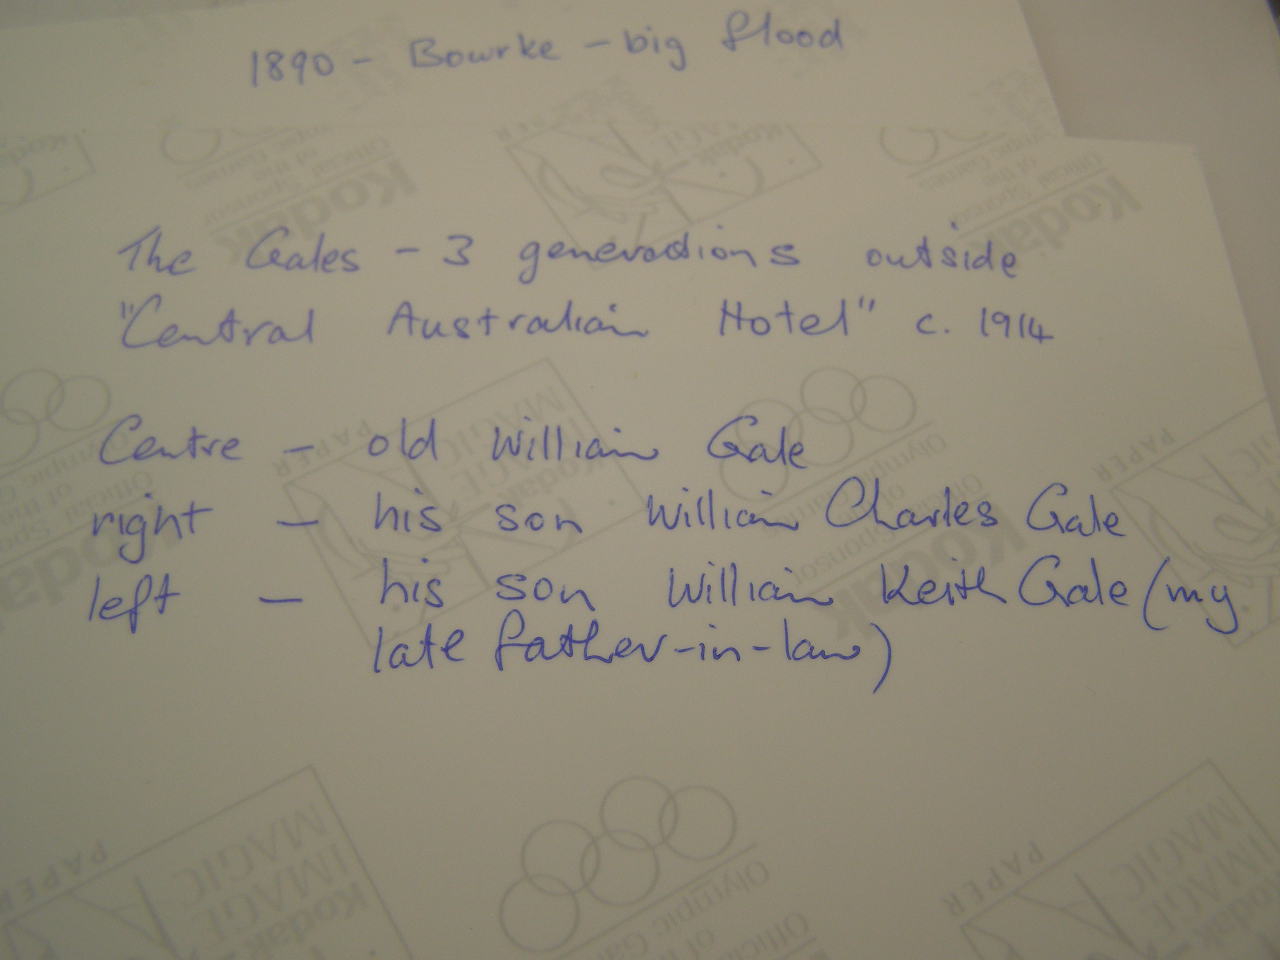 1890 - Bourke - big flood
The Gales - 3 generations outside
"Central Australian Hotel" c. 1914
Centre - old William Gale
right - his son William Charles Gale
left - his son William Keith Gale (my
late father-in-law)
Kodak
Official Sponsor
of the
Olympic Games
Kodak
IMAGE
MAGIC
PAPER